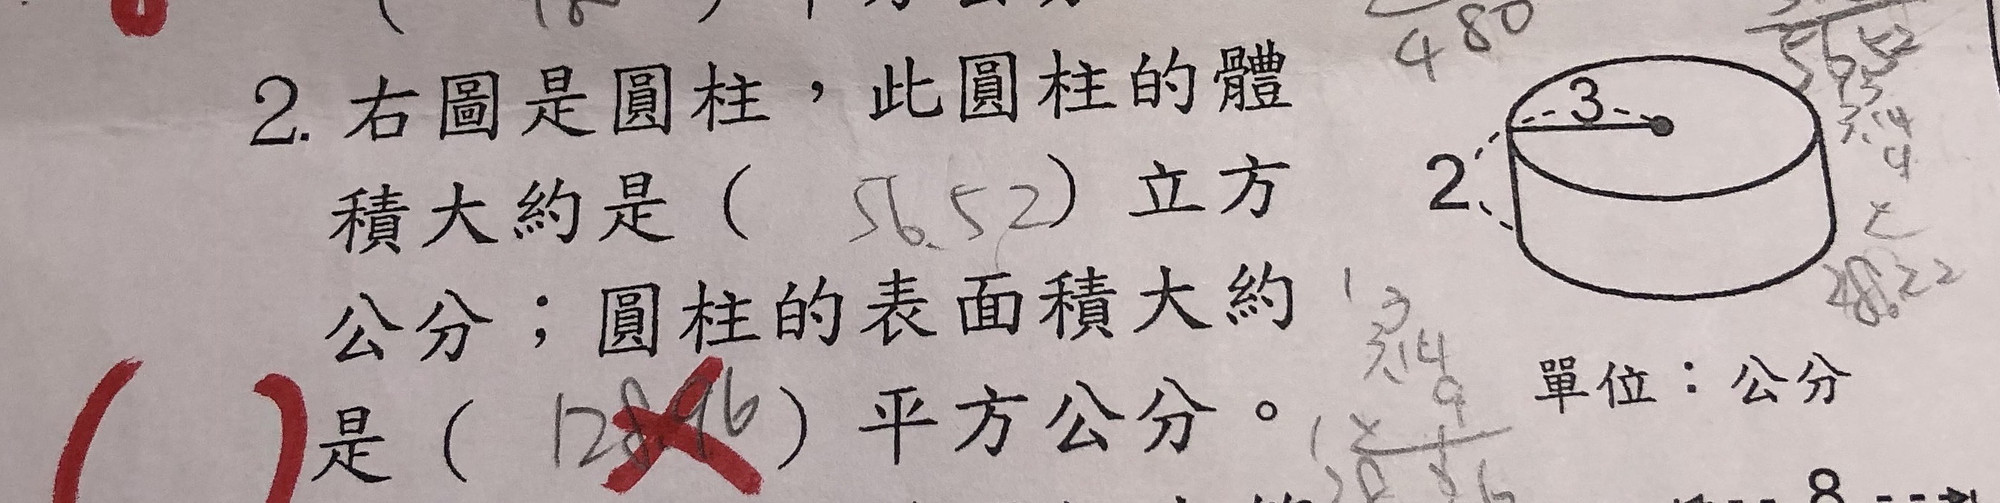 480
5652
2. 右圖是圓柱,此圓柱的體
3
2
3.14
積大約是( 56.52)立方
28.22
公分;圓柱的表面積大約
3.14
9
單位:公分
是( 128.96)平方公分。
8